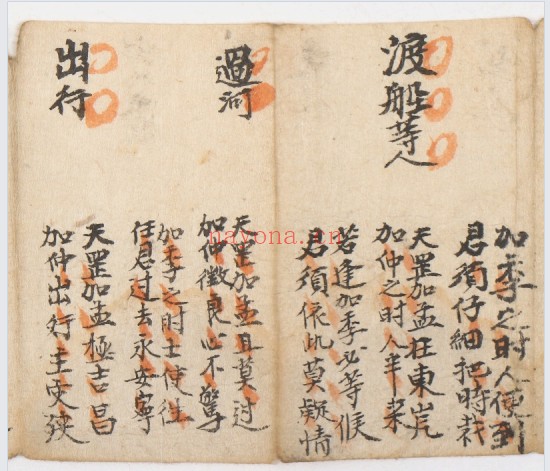 加季之时人便到
君須仔細把時裁
渡船等人
天罡加孟在東岸
加仲之时人半来
若逢加季必等候
君須依此莫疑情
過河
天罡加孟且莫过
加仲良心不驚
加季之时使往
任君过去永安寧
出行
天罡加孟極吉昌
加仲出行主灾殃
nayona.cn